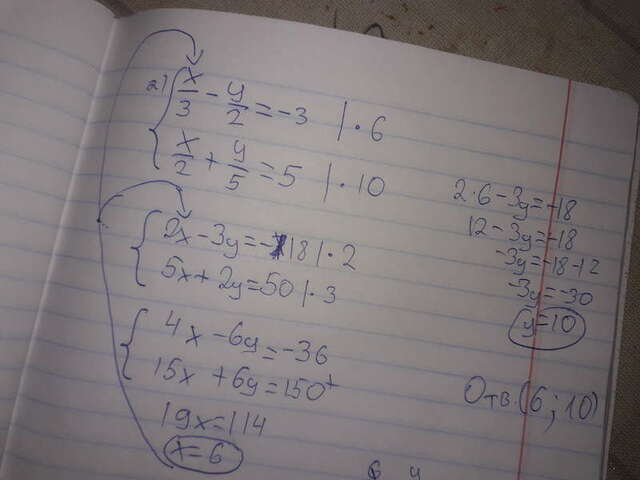 2) x/3 - y/2 = -3 | · 6
x/2 + y/5 = 5 | · 10
2x - 3y = -18 | · 2
5x + 2y = 50 | · 3
4x - 6y = -36
15x + 6y = 150 +
19x = 114
x = 6
2·6 - 3y = -18
12 - 3y = -18
-3y = -18 - 12
-3y = -30
y = 10
Отв.(6; 10)